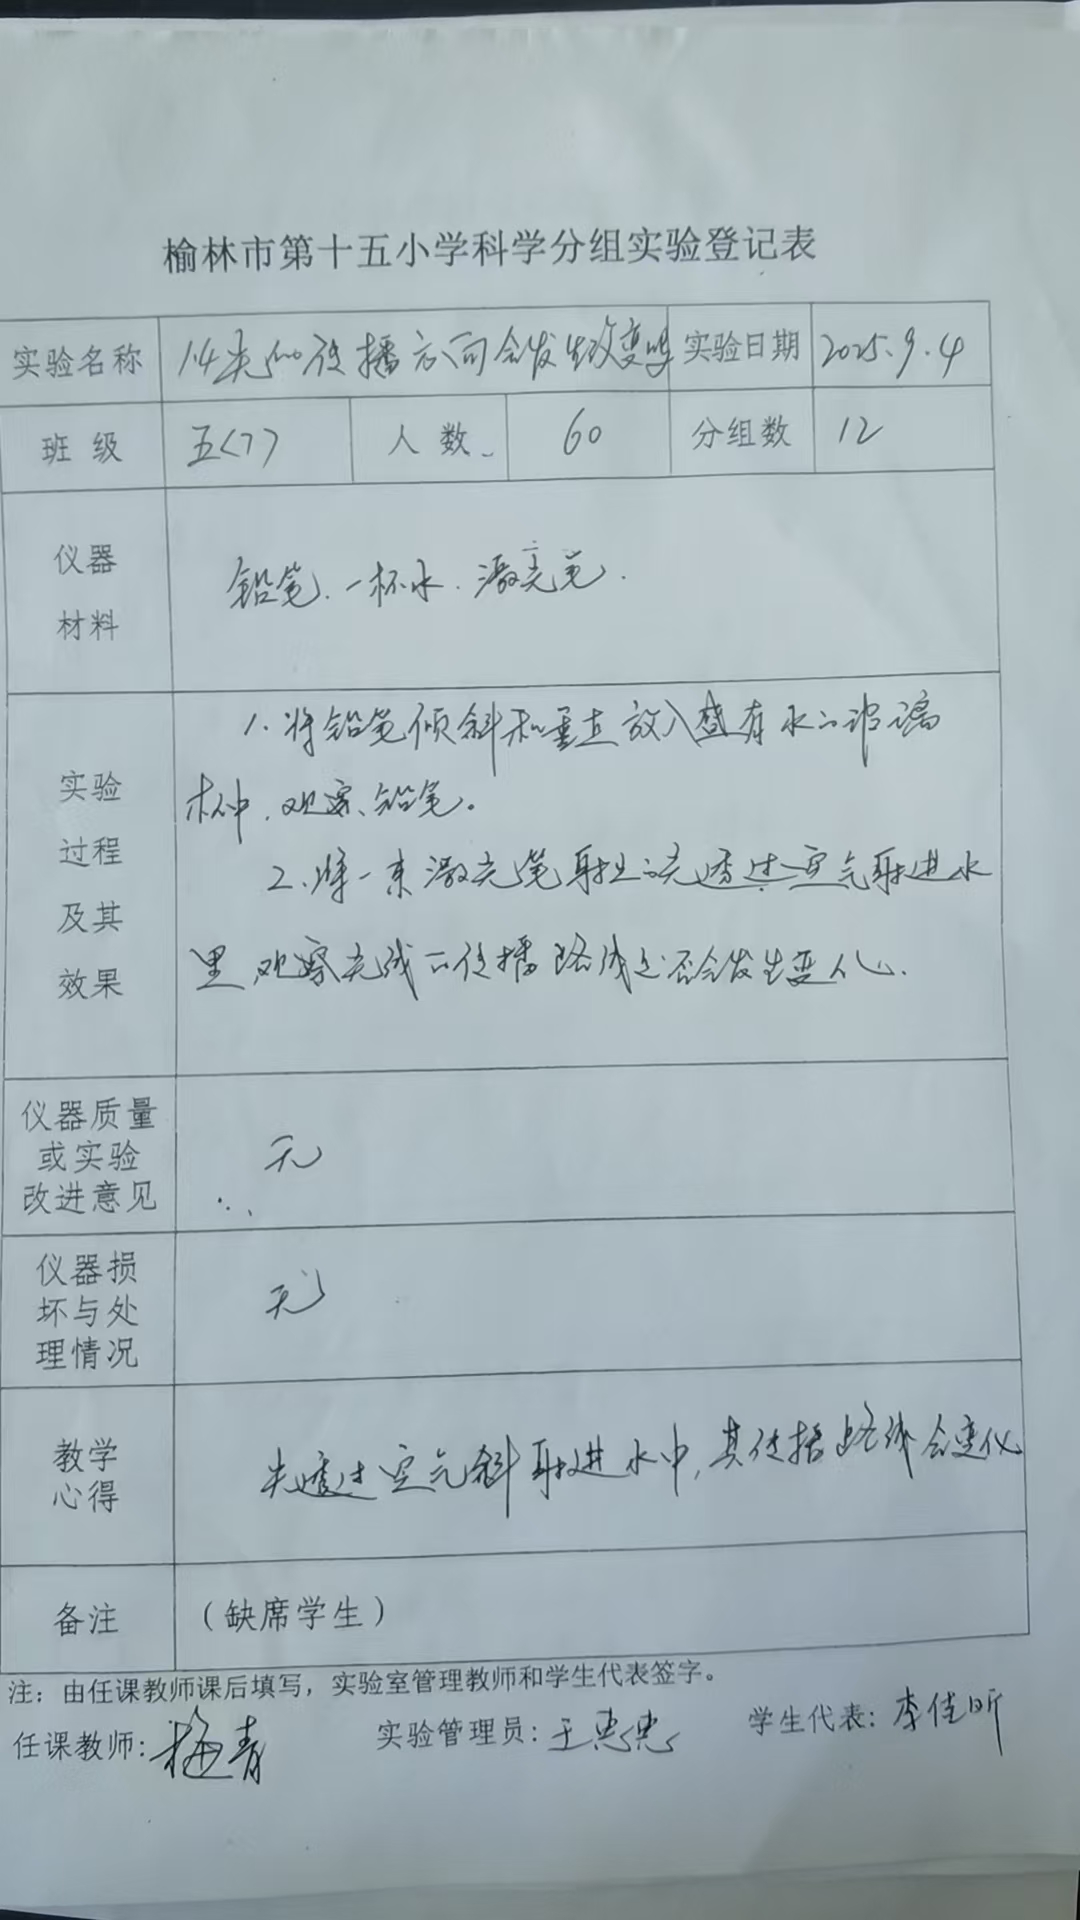 榆林市第十五小学科学分组实验登记表
实验名称 1.4光的传播方向会发生改变吗 实验日期 2025.9.4
班 级 五<7> 人 数 60 分组数 12
仪器
材料
铅笔、一杯水、激光笔.
实验
过程
及其
效果
1.将铅笔倾斜和垂直放入盛有水的玻璃
杯中,观察铅笔。
2.将一束激光笔射出的光透过空气射进水
里,观察光线的传播路线是否会发生变化.
仪器质量
或实验
改进意见
无
仪器损
坏与处
理情况
无
教学
心得
光透过空气斜射进水中,其传播路线会变化
备注 (缺席学生)
注：由任课教师课后填写，实验室管理教师和学生代表签字。
任课教师:梅青 实验管理员:王惠惠 学生代表:李佳昕